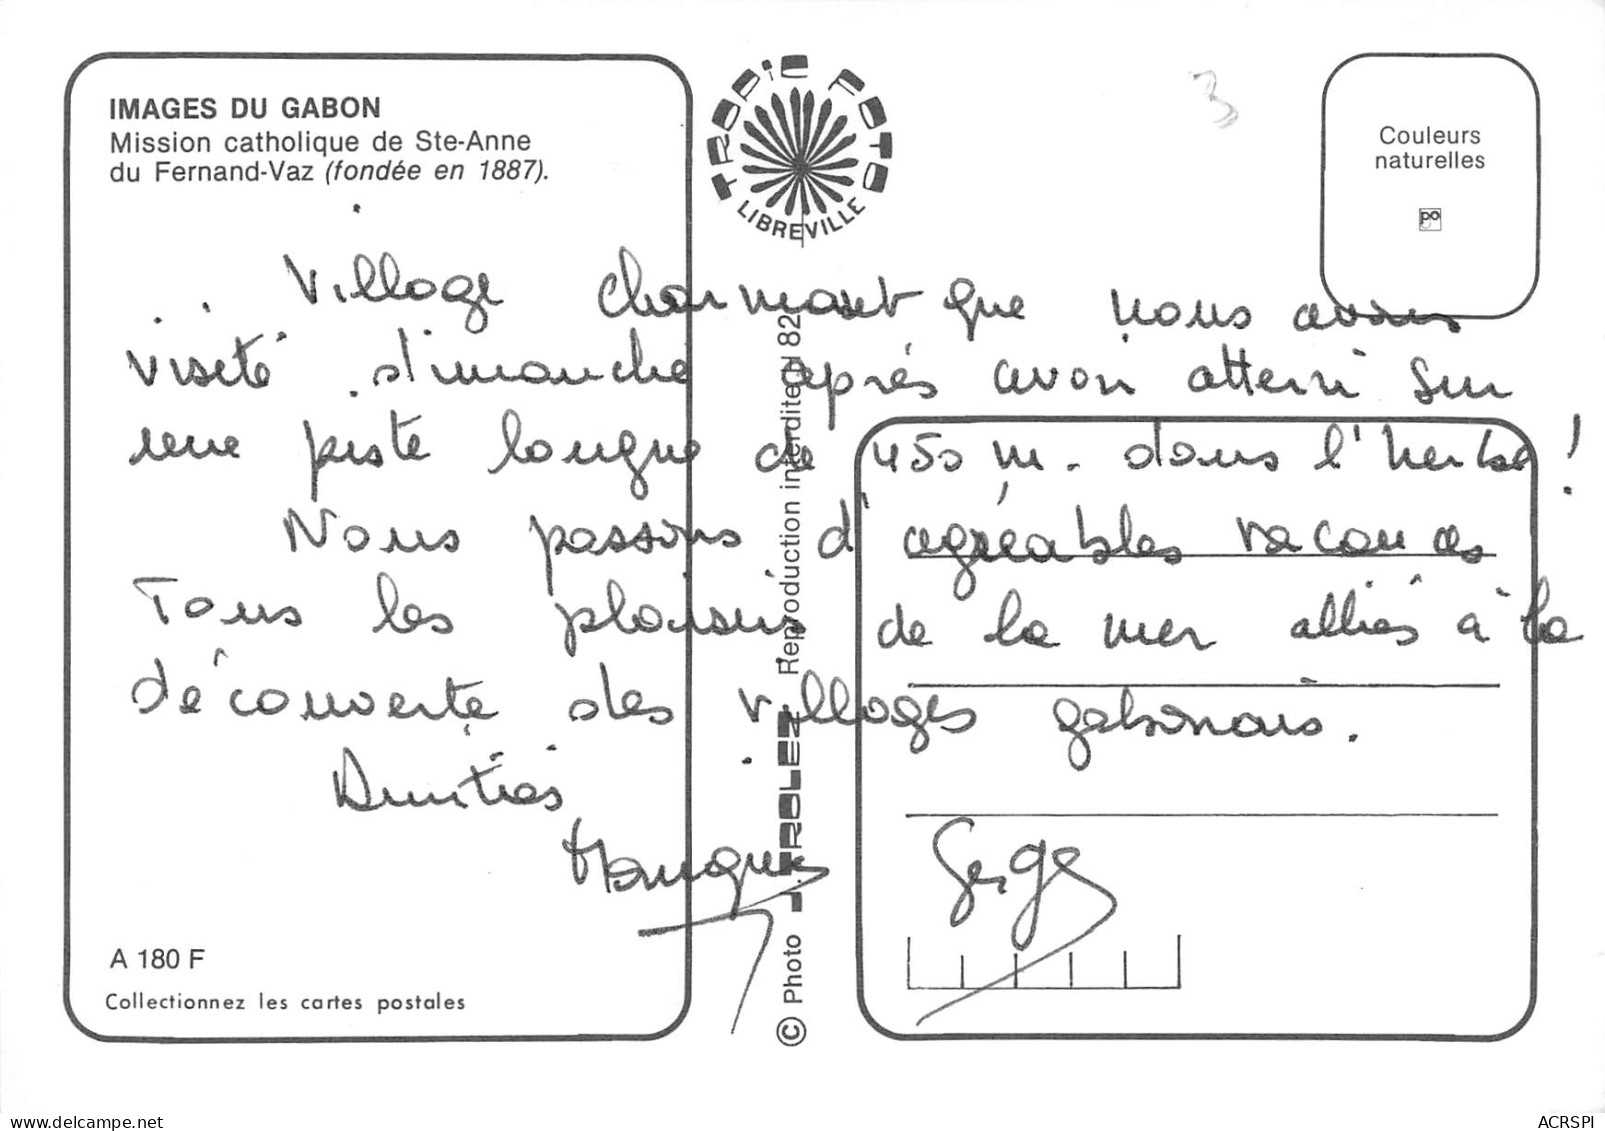 IMAGES DU GABON
Mission catholique de Ste-Anne
du Fernand-Vaz (fondée en 1887).
TROPIC FOTO
LIBREVILLE
3
Couleurs
naturelles
po
Village charmant que nous avons
visité dimanche après avoir atterri sur
une piste longue de 450 m. dans l'herbe !
Nous passons d'agréables vacances
Tous les plaisirs de la mer alliés à la
découverte des villages gabonais.
Amitiés
Serge
A 180 F
Collectionnez les cartes postales
© Photo J. TROLEZ Reproduction interdite 82
www.delcampe.net
ACRSPI